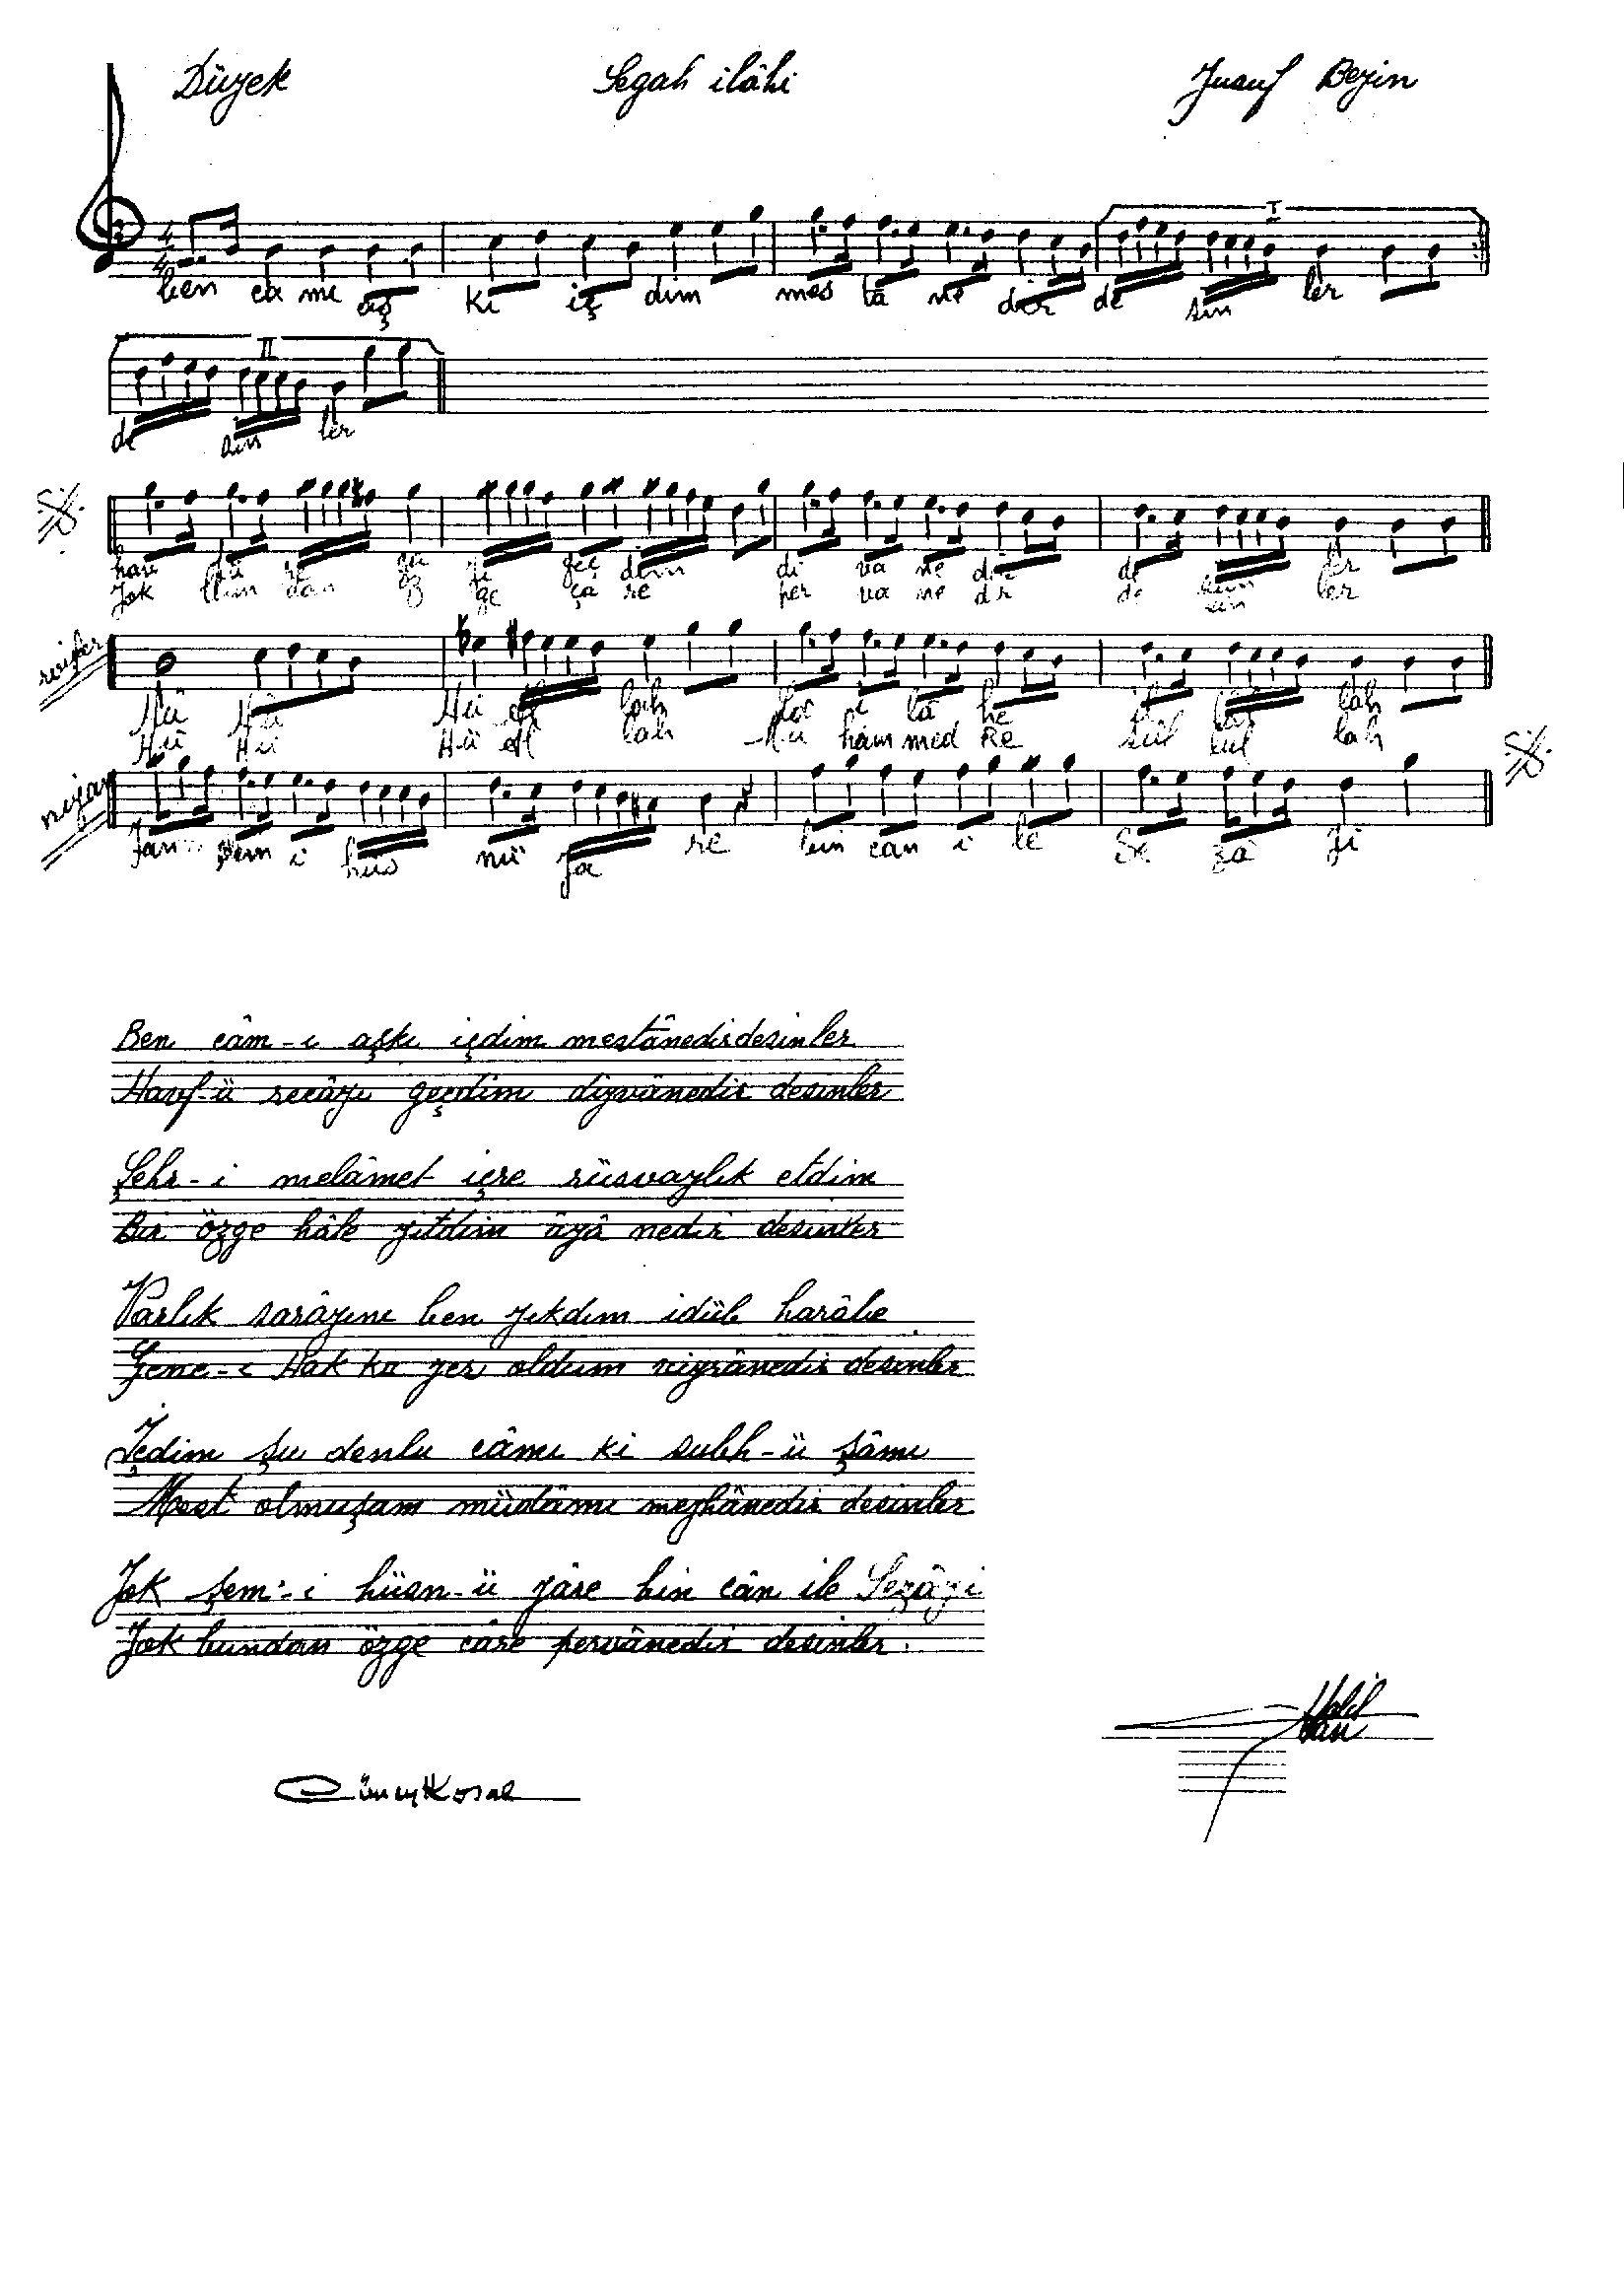 Düyek Segah ilâhi Yusuf Beyin
I
ben ca mı aş kı iç dim mes ta ne dir de sin ler
II
de sin ler
havf ü re ca yı geç dim di va ne dir de sin ler
Yok bun dan öz ge ça re per va ne dir de sin ler
Hü Hü Hü al lah la i la he il lal lah
Hü Hü Hü al lah Mu ham med Re sül lul lah
Yan şem i hüs nü ya re bin can i le Se za yi
Ben câm-ı aşkı içdim mestânedir desinler
Havf-ü recâyı geçdim diyvânedir desinler
Şehr-i melâmet içre rüsvaylık etdim
Bir özge hâle yitdim âyâ nedir desinler
Varlık sarâyını ben yıkdım idüb harâbe
Genc-i Hak ka yer oldum viyrânedir desinler
İçdim şu denlu câmı ki subh-ü şâmı
Mest olmuşam müdâmı meyhânedir desinler
Yak şem'-i hüsn-ü yâre bin cân ile Sezâyi
Yok bundan özge câre pervânedir desinler
Halil Can